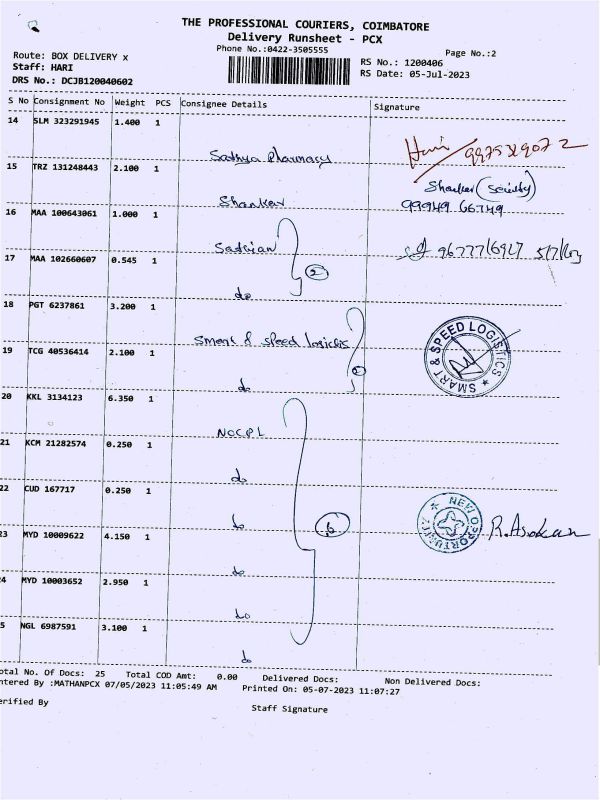 THE PROFESSIONAL COURIERS, COIMBATORE
Delivery Runsheet - PCX
Phone No.:0422-3505555
Page No.:2
Route: BOX DELIVERY x
Staff: HARI
DRS No.: DCJB120040602
RS No.: 1200406
RS Date: 05-Jul-2023
S No Consignment No Weight PCS Consignee Details Signature
14 SLM 323291945 1.400 1
Sathya Pharmacy
15 TRZ 131248443 2.100 1
Shankar
Shankar (Society)
99949 66749
16 MAA 100643061 1.000 1
17 MAA 102660607 0.545 1
2
do
18 PGT 6237861 3.200 1
Smart & speed logistics
SMART & SPEED LOGISTICS
19 TCG 40536414 2.100 1
do
20 KKL 3134123 6.350 1
NOCPL
21 KCM 21282574 0.250 1
do
22 CUD 167717 0.250 1
do
6
R. Asokan
23 MYD 10009622 4.150 1
do
24 MYD 10003652 2.950 1
do
5 NGL 6987591 3.100 1
do
otal No. Of Docs: 25 Total COD Amt: 0.00 Delivered Docs: Non Delivered Docs:
ntered By :MATHANPCX 07/05/2023 11:05:49 AM Printed On: 05-07-2023 11:07:27
erified By
Staff Signature